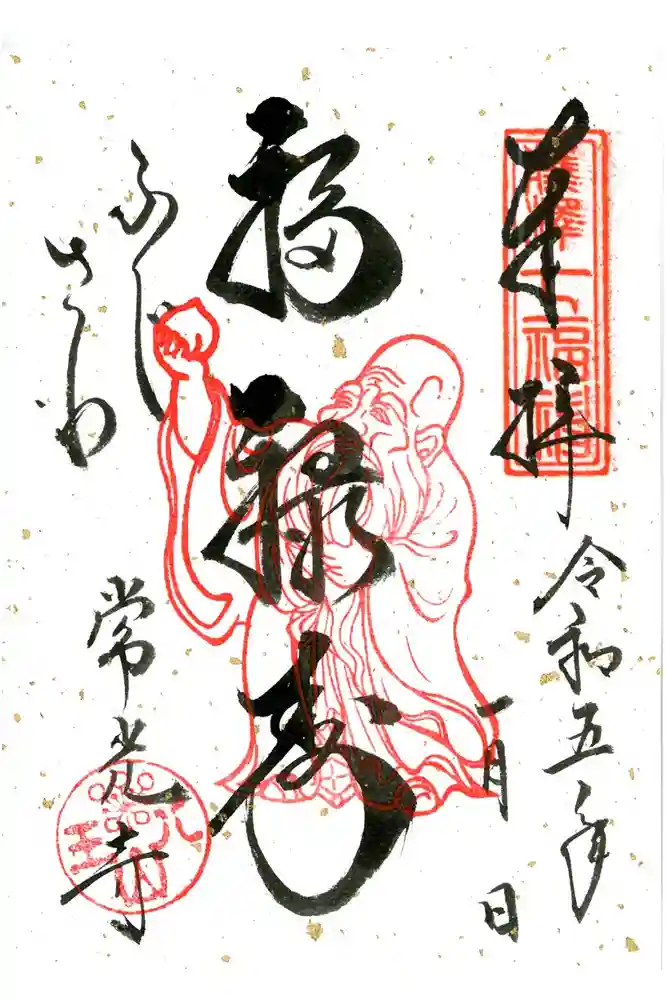 奉拝
藤澤七福神
令和五年
一月 日
福禄寿
ふし
さわ
常光寺